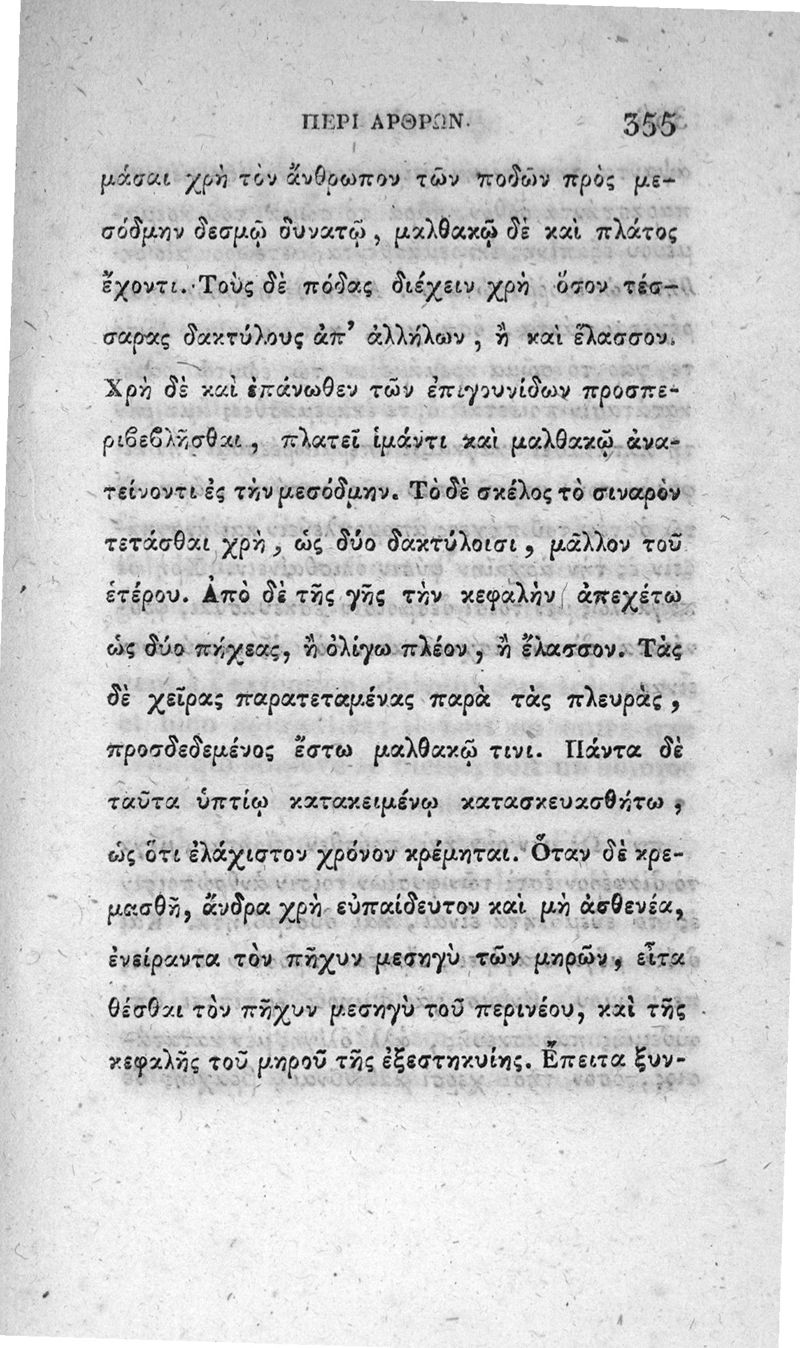 ΠΕΡΙ ΑΡΘΡΩΝ. 355
μάσαι χρὴ τὸν ἄνθρωπον τῶν ποδῶν πρὸς με-
σόδμην δεσμῷ δυνατῷ, μαλθακῷ δὲ καὶ πλάτος
ἔχοντι. Τοὺς δὲ πόδας διέχειν χρὴ ὅσον τέσ-
σαρας δακτύλους ἀπ’ ἀλλήλων, ἢ καὶ ἔλασσον.
Χρὴ δὲ καὶ ἐπάνωθεν τῶν ἐπιγουνίδων προσπε-
ριϐεϐλῆσθαι, πλατεῖ ἱμάντι καὶ μαλθακῷ ἀνα-
τείνοντι ἐς τὴν μεσόδμην. Τὸ δὲ σκέλος τὸ σιναρὸν
τετάσθαι χρὴ, ὡς δύο δακτύλοισι, μᾶλλον τοῦ
ἑτέρου. Ἀπὸ δὲ τῆς γῆς τὴν κεφαλὴν ἀπεχέτω
ὡς δύο πήχεας, ἢ ὀλίγω πλέον, ἢ ἔλασσον. Τὰς
δὲ χεῖρας παρατεταμένας παρὰ τὰς πλευρὰς,
προσδεδεμένος ἔστω μαλθακῷ τινι. Πάντα δὲ
ταῦτα ὑπτίῳ κατακειμένῳ κατασκευασθήτω,
ὡς ὅτι ἐλάχιστον χρόνον κρέμηται. Ὅταν δὲ κρε-
μασθῆ, ἄνδρα χρὴ εὐπαίδευτον καὶ μὴ ἀσθενέα,
ἐνείραντα τὸν πῆχυν μεσηγὺ τῶν μηρῶν, εἶτα
θέσθαι τὸν πῆχυν μεσηγὺ τοῦ περινέου, καὶ τῆς
κεφαλῆς τοῦ μηροῦ τῆς ἐξεστηκυίης. Ἔπειτα ξυν-